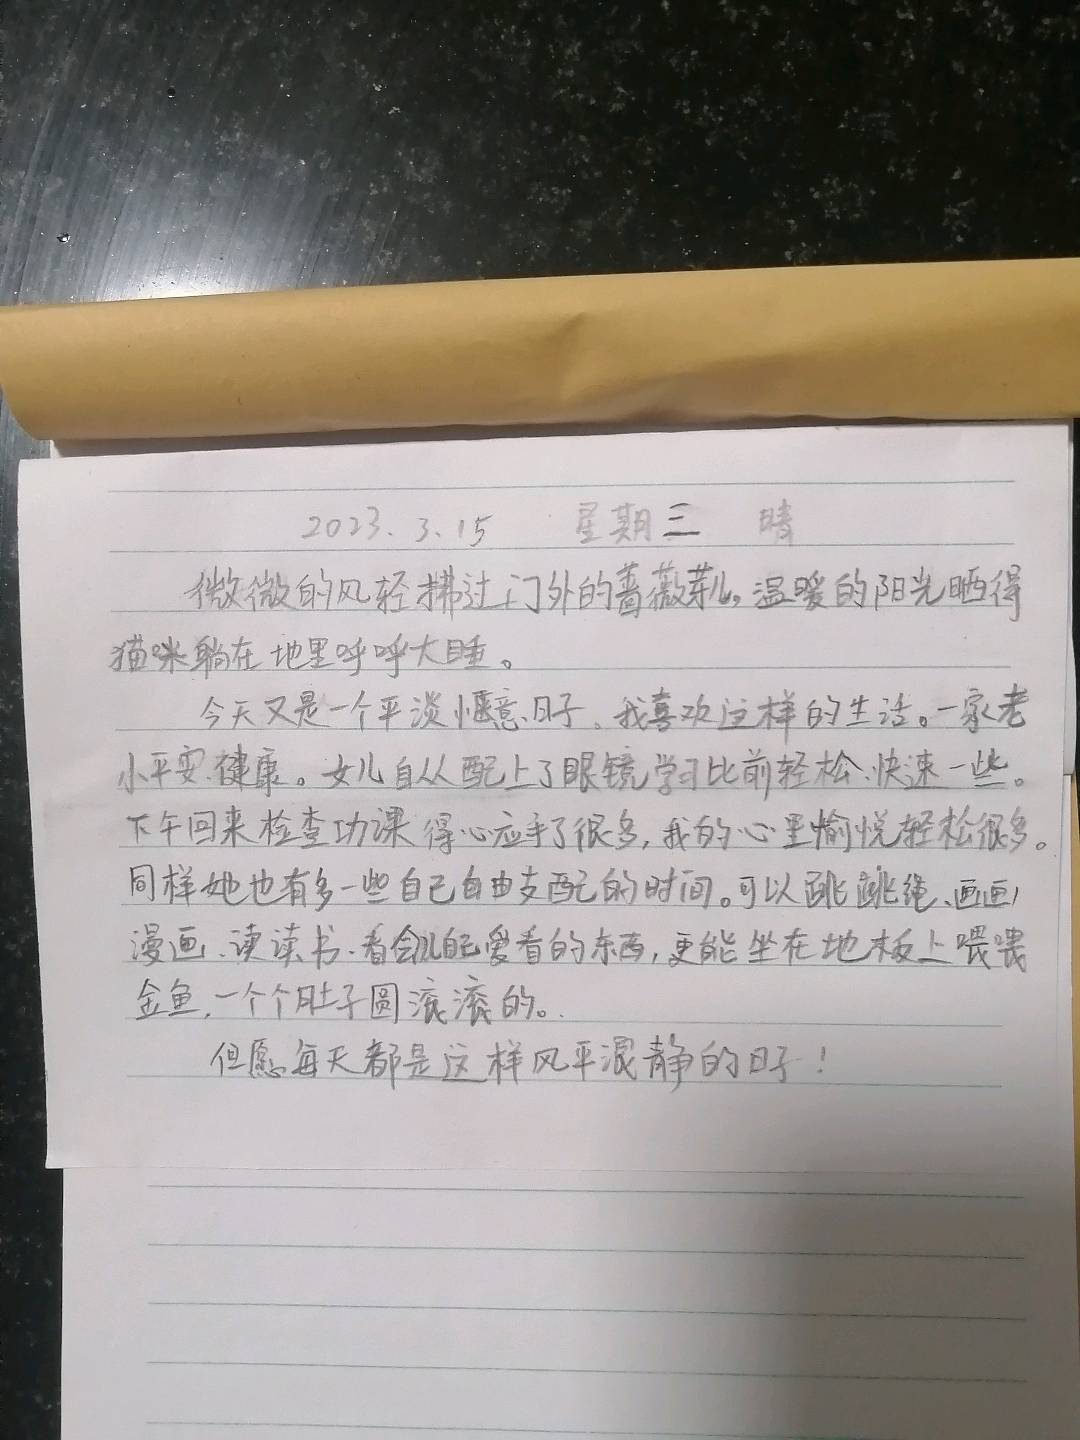 2023.3.15 星期三 晴
微微的风轻拂过门外的蔷薇芽儿。温暖的阳光晒得
猫咪躺在地里呼呼大睡。
今天又是一个平淡惬意日子。我喜欢这样的生活。一家老
小平安、健康。女儿自从配上了眼镜学习比前轻松、快速一些。
下午回来检查功课得心应手了很多,我的心里愉悦轻松很多。
同样她也有多一些自己自由支配的时间。可以跳跳绳、画画
漫画、读读书、看会儿自己爱看的东西,更能坐在地板上喂喂
金鱼,一个个肚子圆滚滚的。
但愿每天都是这样风平浪静的日子!